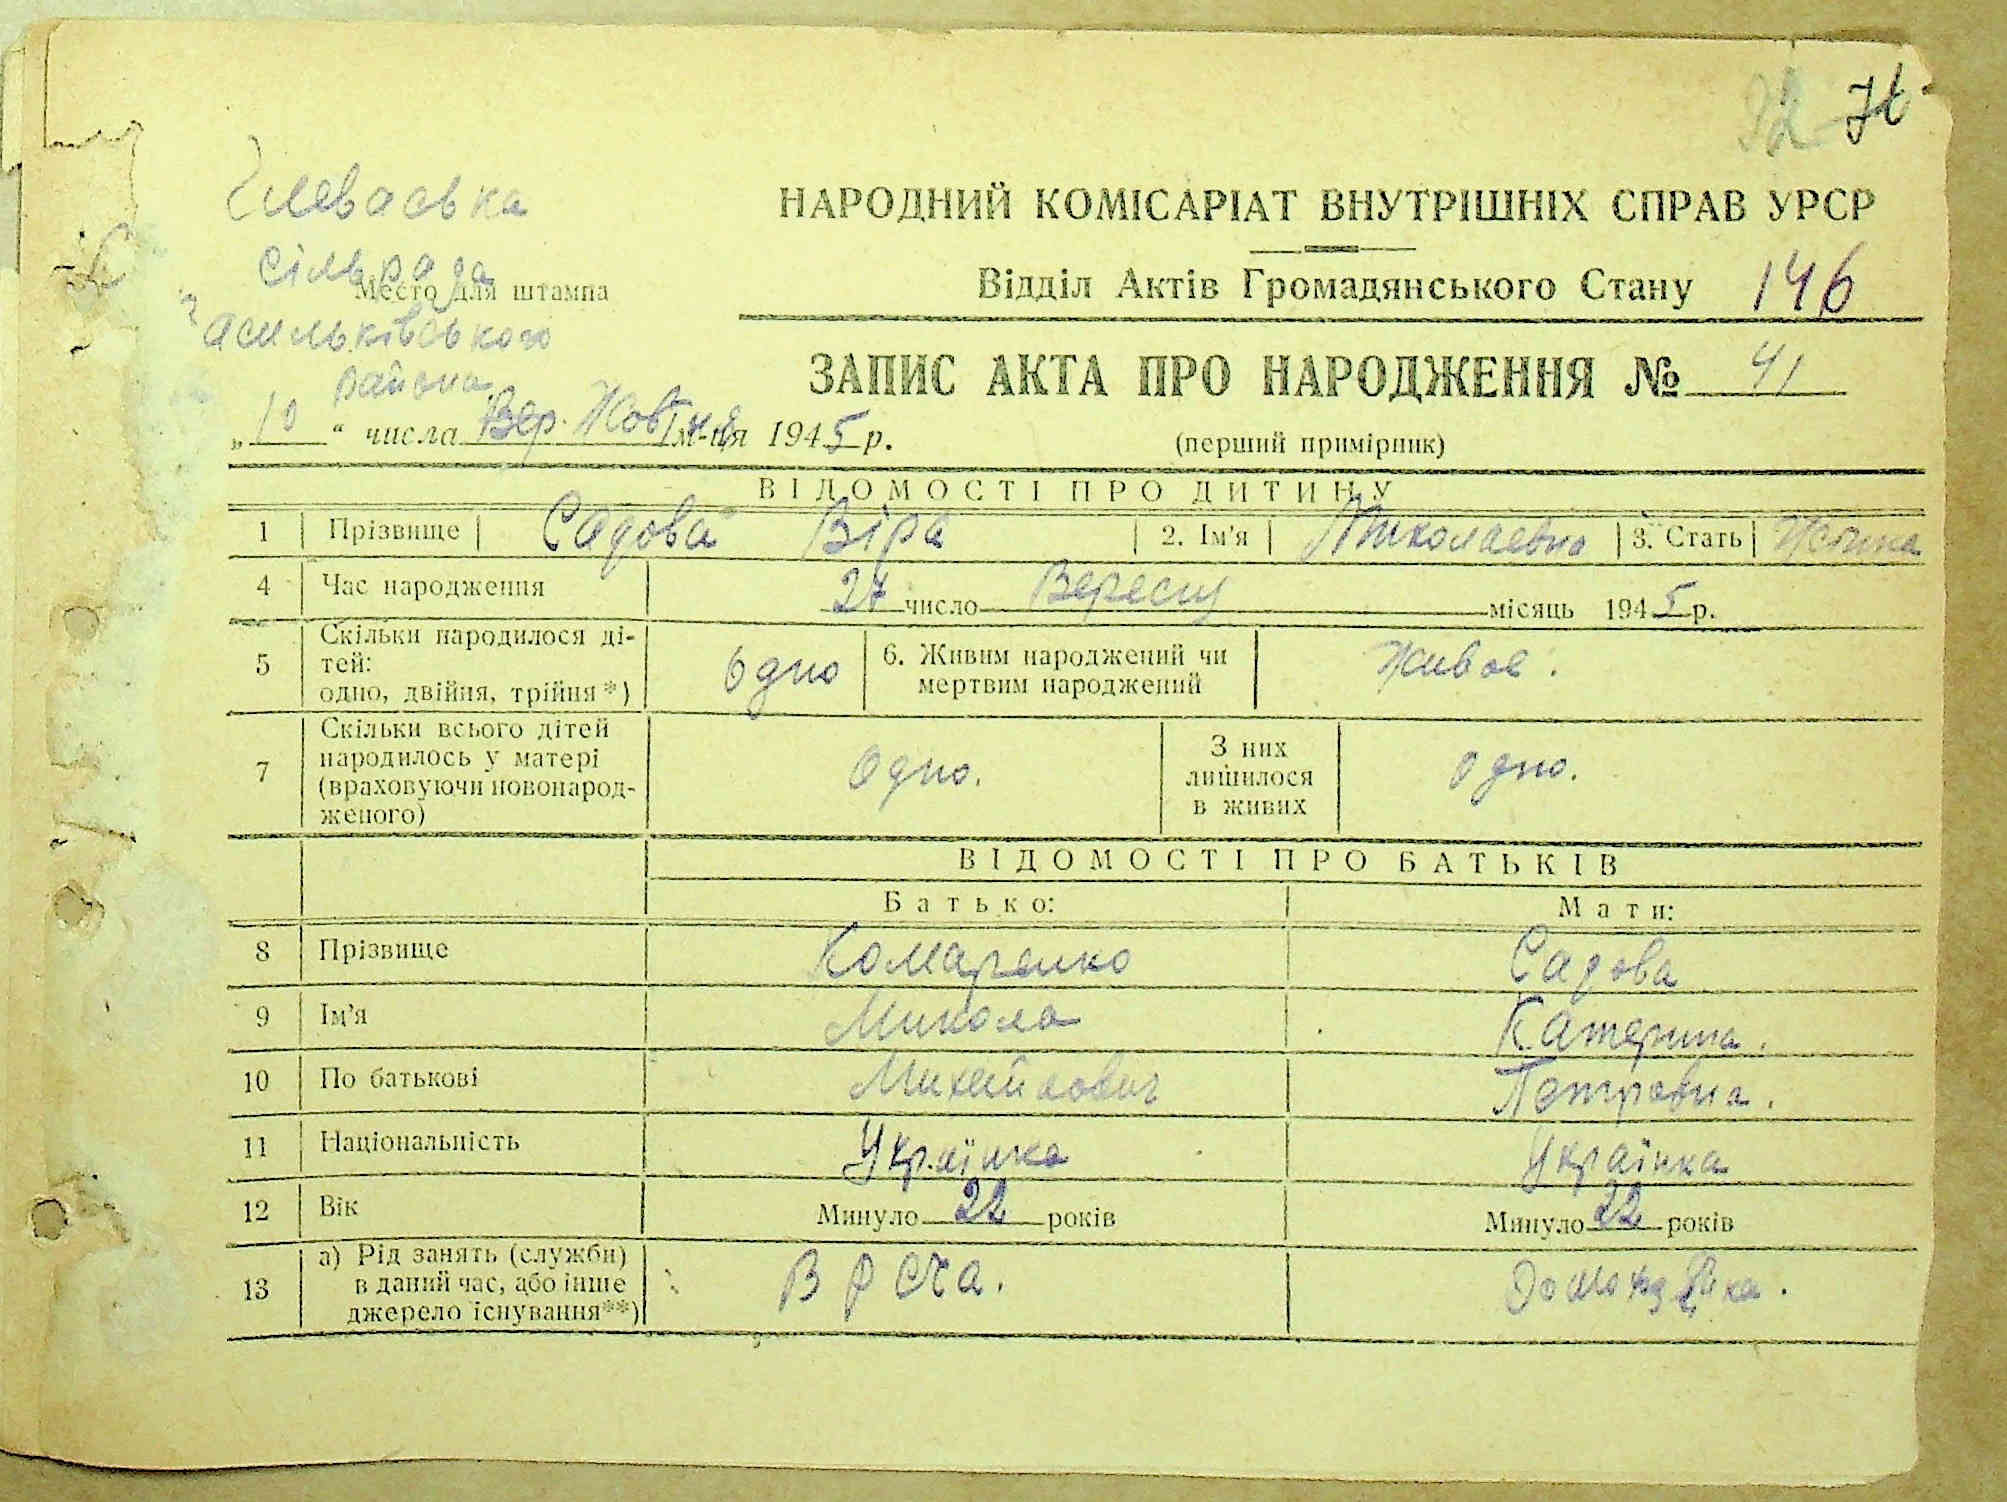 71
Глеваська
сільрада
Место для штампа
Васильківського
района
НАРОДНИЙ КОМІСАРІАТ ВНУТРІШНІХ СПРАВ УРСР
Відділ Актів Громадянського Стану 146
ЗАПИС АКТА ПРО НАРОДЖЕННЯ № 41
„10“ числа Вер. Жовтня м-ця 1945 р.
(перший примірник)
ВІДОМОСТІ ПРО ДИТИНУ
1 Прізвище Садова Віра 2. Ім'я Миколаевна 3. Стать Жінка
4 Час народження 27 число Вересня місяць 1945 р.
5 Скільки народилося ді-
тей:
одно, двійня, трійня*) Одно 6. Живим народжений чи
мертвим народжений Живое.
7 Скільки всього дітей
народилось у матері
(враховуючи новонарод-
женого) Одно. З них
лишилося
в живих одно.
ВІДОМОСТІ ПРО БАТЬКІВ
Батько: Мати:
8 Прізвище Комаренко Садова
9 Ім'я Микола Катерина.
10 По батькові Михайлович Петровна.
11 Національність Українка Українка
12 Вік Минуло 22 років Минуло 22 років
13 а) Рід занять (служби)
в даний час, або інше
джерело існування**) В РСЧА.